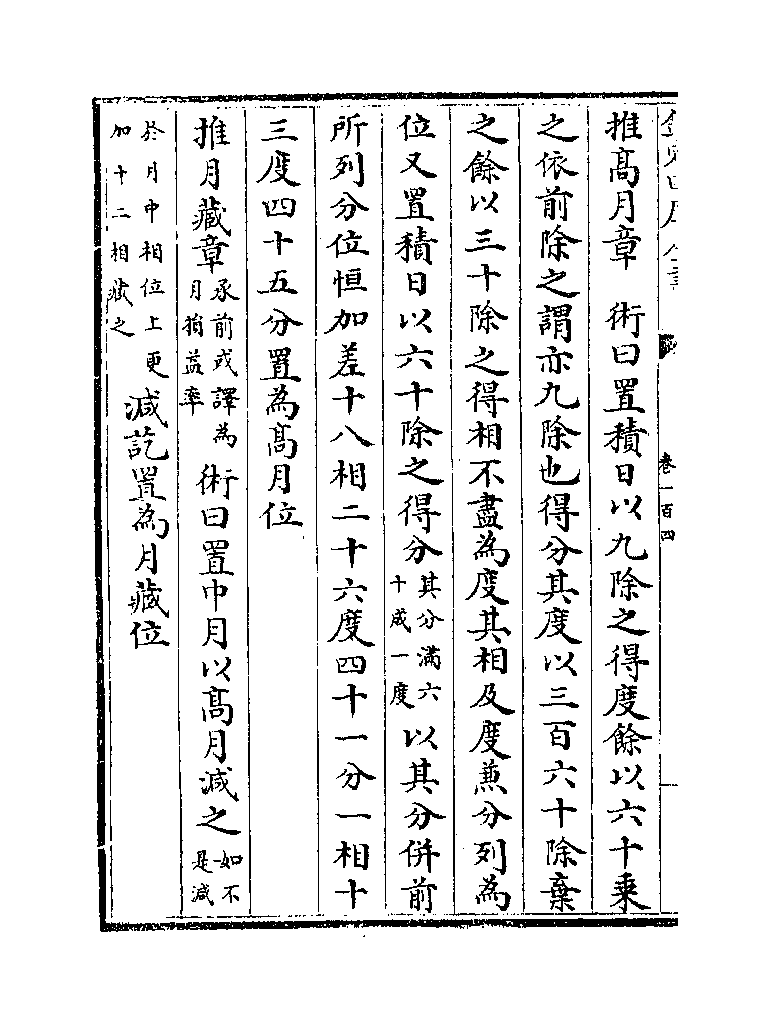 卷一百四
推髙月章　術曰置積日以九除之得度餘以六十乗
之依前除之謂亦九除也得分其度以三百六十除棄
之餘以三十除之得相不盡為度其相及度兼分列為
位又置積日以六十除之得分其分滿六十成一度以其分併前
所列分位恒加差十八相二十六度四十一分一相十
三度四十五分置為髙月位
推月藏章承前或譯為月損益率術曰置中月以髙月減之如不是減
於月中相位上更加十二相藏之減訖置為月藏位